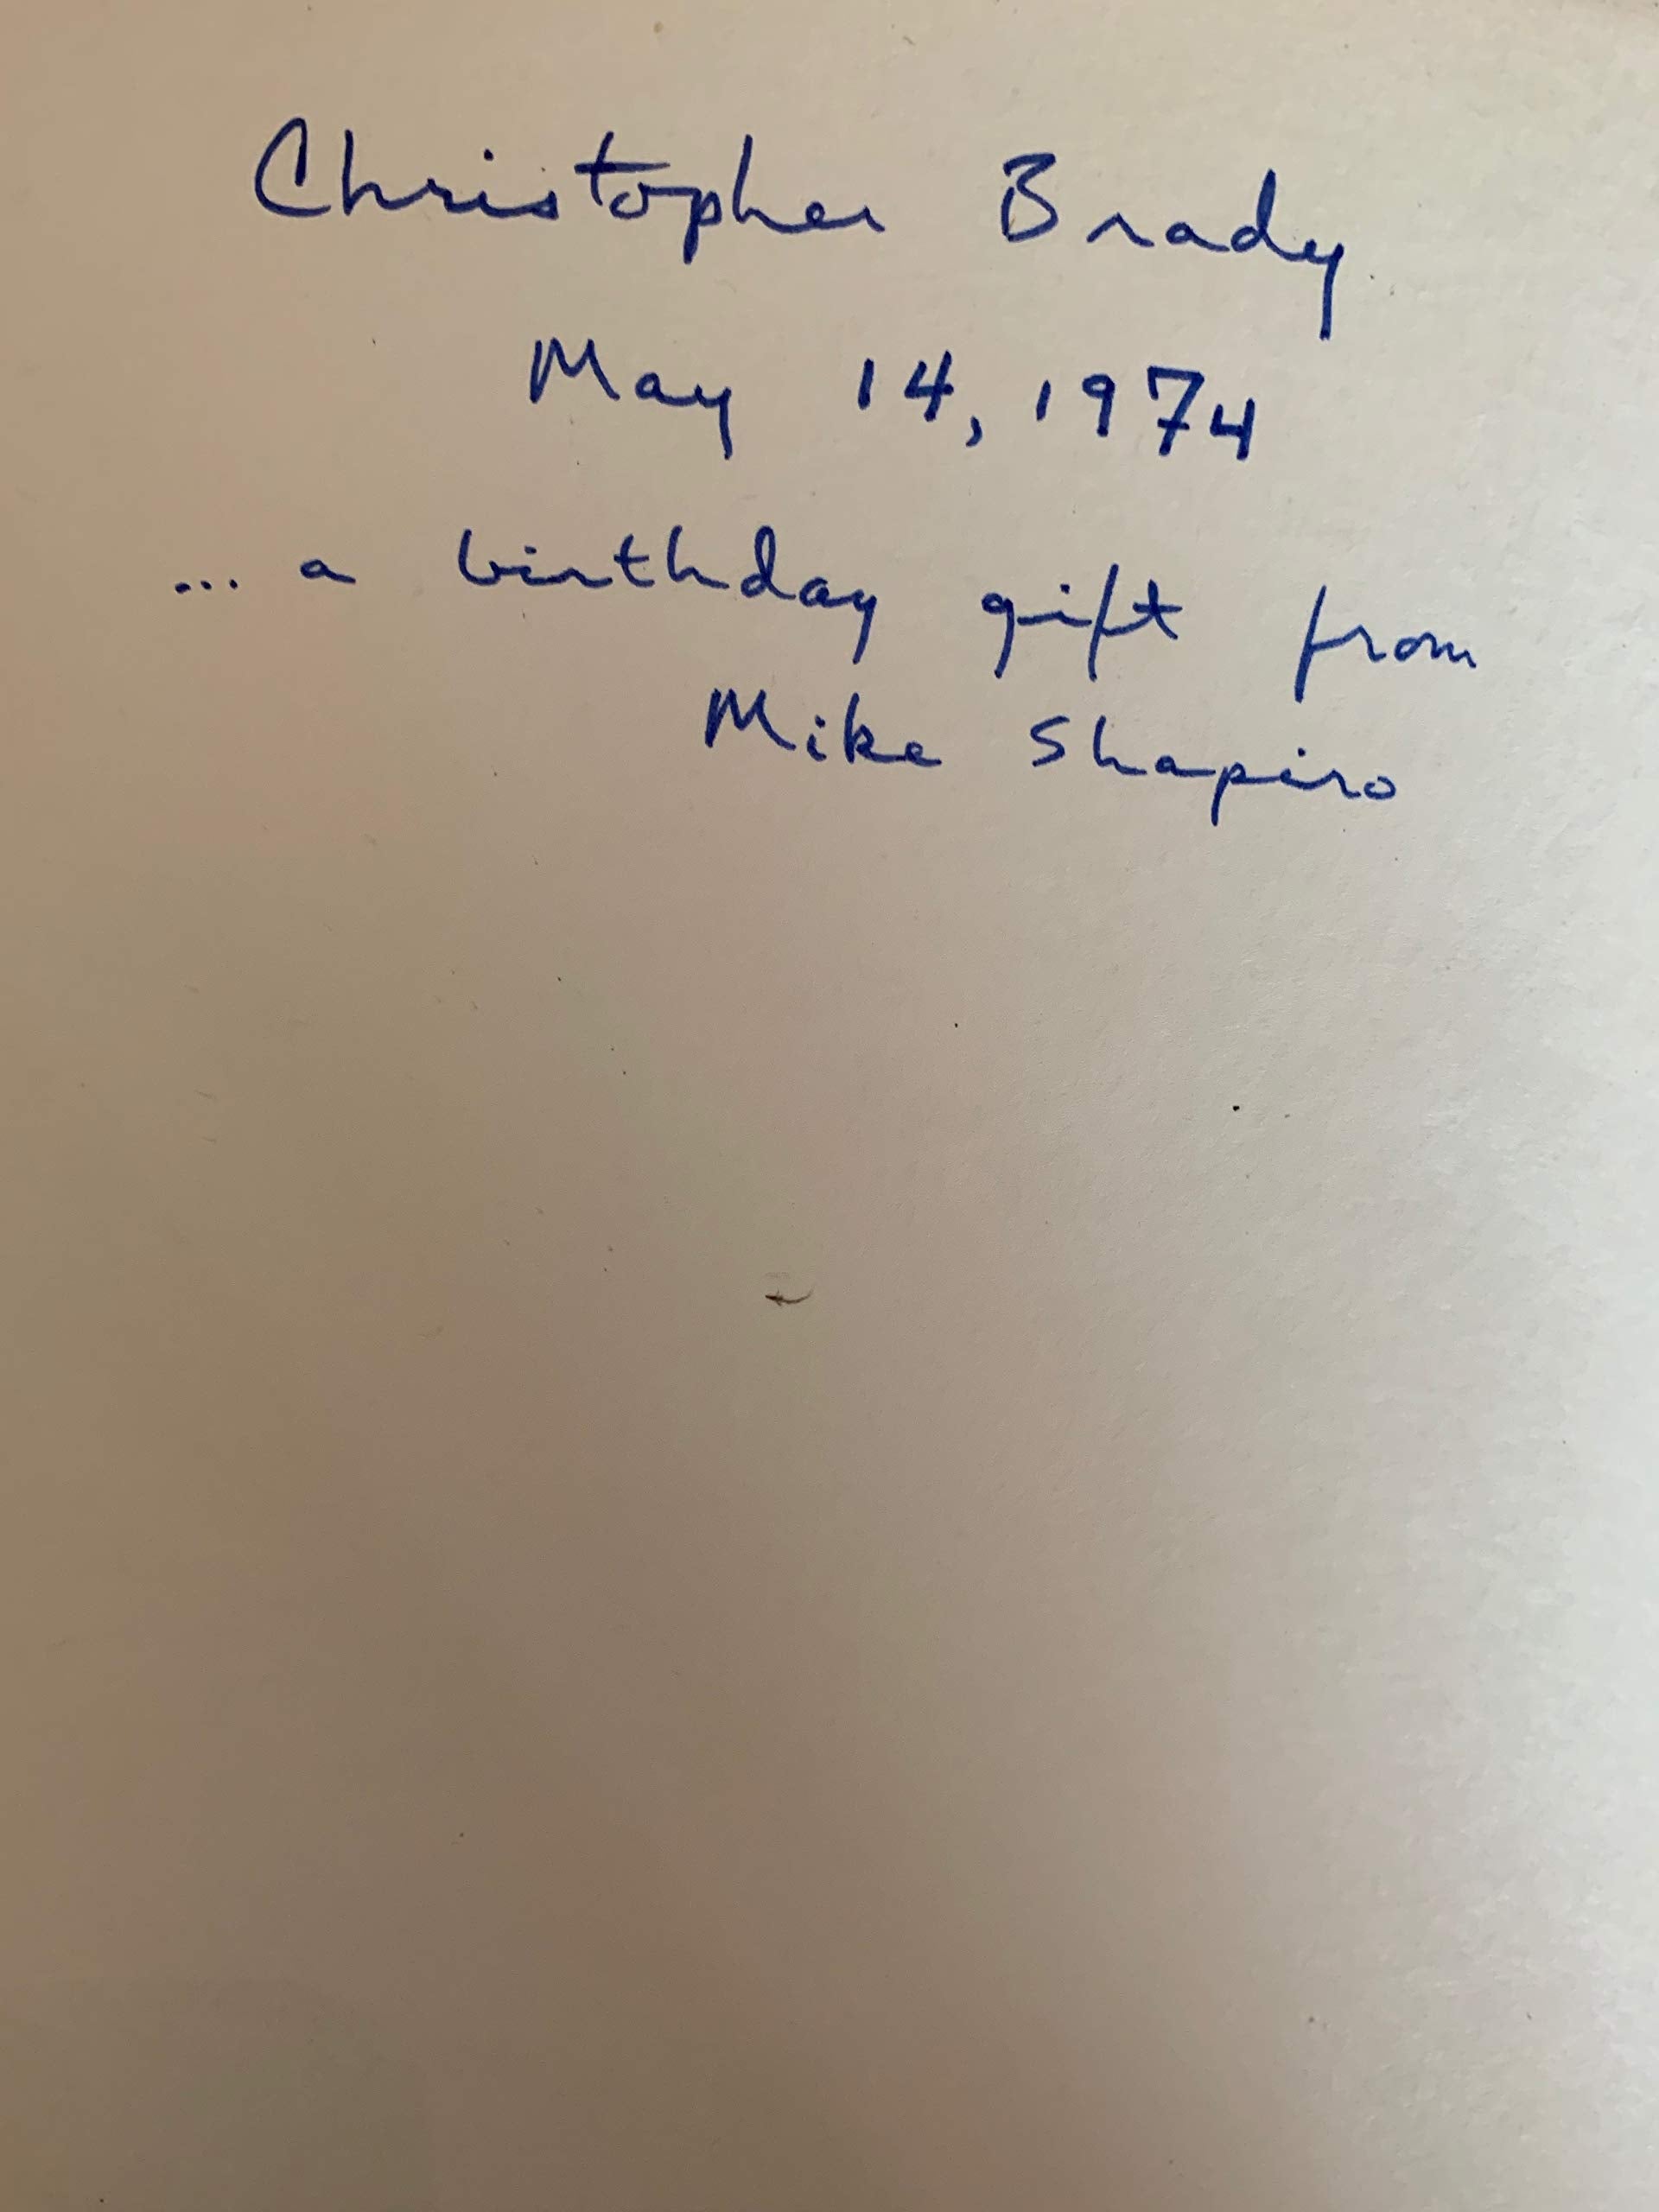 Christopher Brady
May 14, 1974
... a birthday gift from
Mike Shapiro